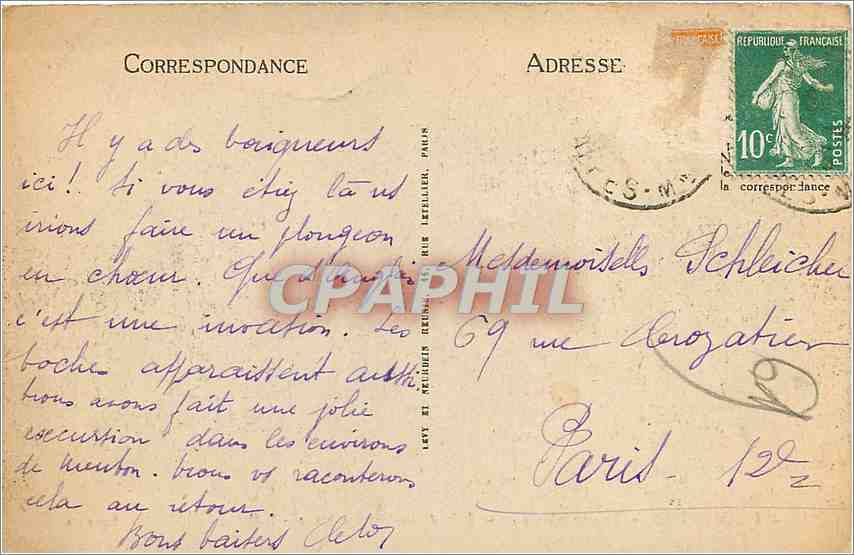 CORRESPONDANCE
ADRESSE
RÉPUBLIQUE FRANÇAISE
10c
POSTES
la correspondance
Il y a des baigneurs
ici! Si vous étiez là ns
irions faire un plongeon
en chœur. Que d'Anglais
c'est une invasion. Les
boches apparaissent aussi.
Nous avons fait une jolie
excursion dans les environs
de Menton. Nous vs raconterons
cela au retour.
Bons baisers
LEVY ET NEURDEIN REUNIS, 44, RUE LETELLIER, PARIS
Mesdemoiselles Schleicher
69 rue Crozatier
Paris. 12e
CPAPHIL